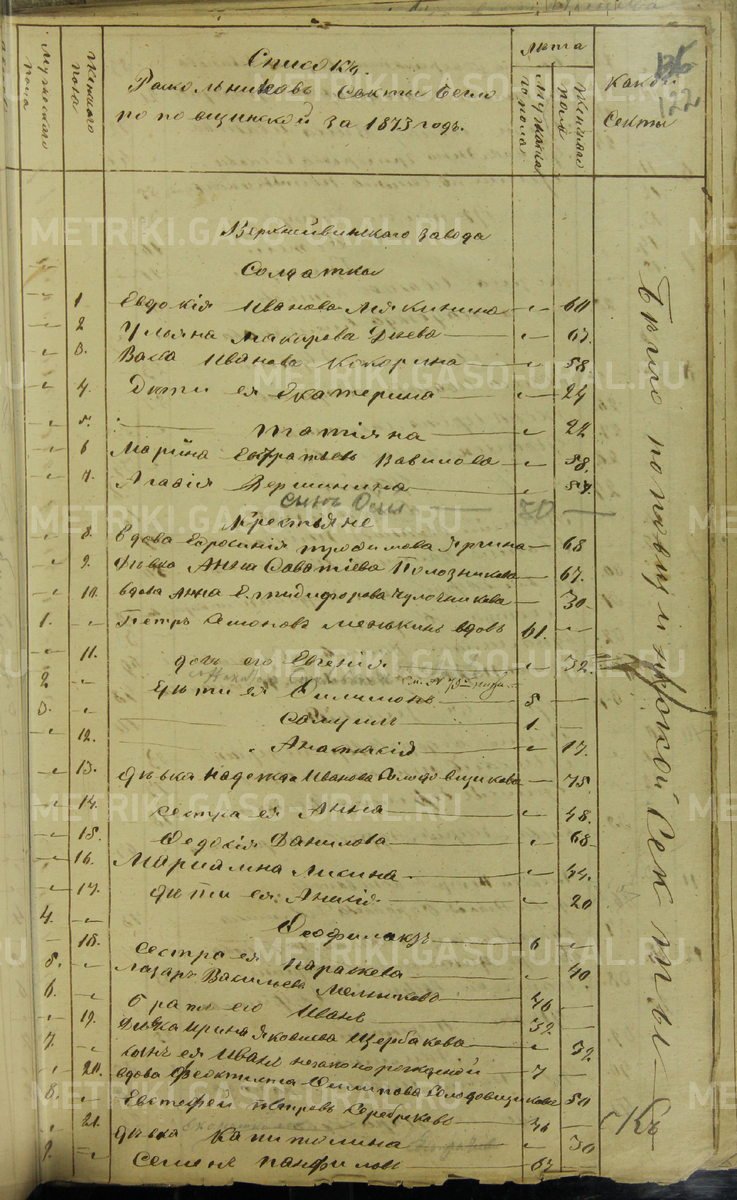 Мужескаго пола
Женскаго пола
Списокъ
Раскольниковъ Секты Бегло
поповщинской за 1873 годъ.
Лѣта
Мужска го пола
Женскаго пола
Какой Секты
122
Верхнейвинскаго завода
Солдатки
1. Евдокія Иванова — 60
2. Ульяна Макарова — 67.
3. Васса Иванова Кокорина — 58.
4. Дѣти ея Екатерина — 24
5. Татіяна — 22
6. Марина Вавилова — 58.
7. Агафія Вершинина — 57.
Крестьяне
8. Вдова Ефросинія Трофимова Яргина — 68
9. Дѣвка Анна Саватіева Полозникова — 67.
10. Вдова Анна Никифорова Чулочникова — 30
1. Петръ вдовъ 61. —
11. дочь его Евгенія — 32.
2. Дѣти ея Филимонъ 8. —
3. Самуилъ 1. —
12. Анастасія — 17.
13. Дѣвка Надежда Иванова — 75.
14. Сестра ея Анна — 48.
15. Федосія Данилова — 68
16. Маріамна Лисина — 44.
17. Дѣти ея — 20
4. Феофилактъ 6 —
18. Сестра ея Параскева — 40.
5. Лазарь Васильевъ Мельниковъ 46 —
6. Братъ его Иванъ 32. —
19. Дѣвка Ирина Яковлева Щербакова — 32.
7. сынъ ея Иванъ незаконорожденной 7 —
20. вдова Феоктиста Филипова Солодовщикова — 50
8. Евстафей Петровъ Серебряковъ 46 —
21. дѣвка Капитолина — 30
9. Семенъ Панфиловъ 67 —
Бѣгло поповщинской Секты